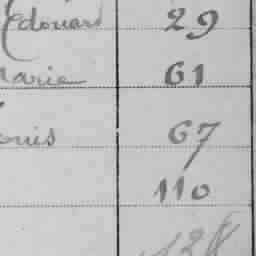 Edouard 29
Marie 61
ouis 67
110